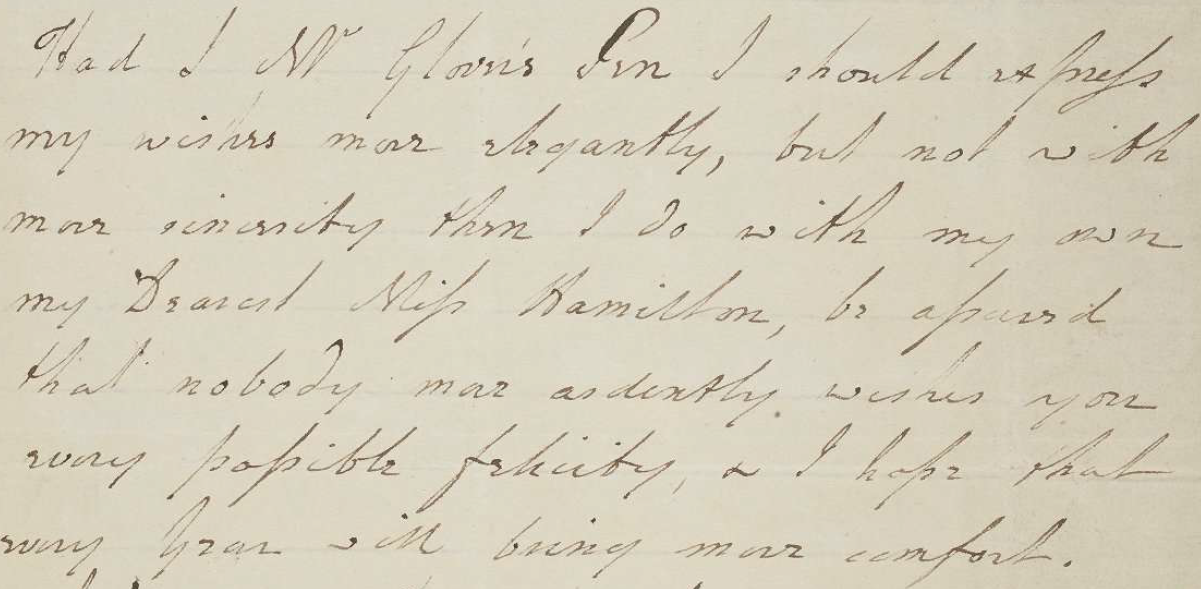 Had I Mr Glover's Pen I should express
my wishes more elegantly, but not with
more sincerity then I do with my own
my Dearest Miss Hamilton, be assured
that nobody more ardently wishes you
every possible felicity, & I hope that
every Year will bring more comfort.